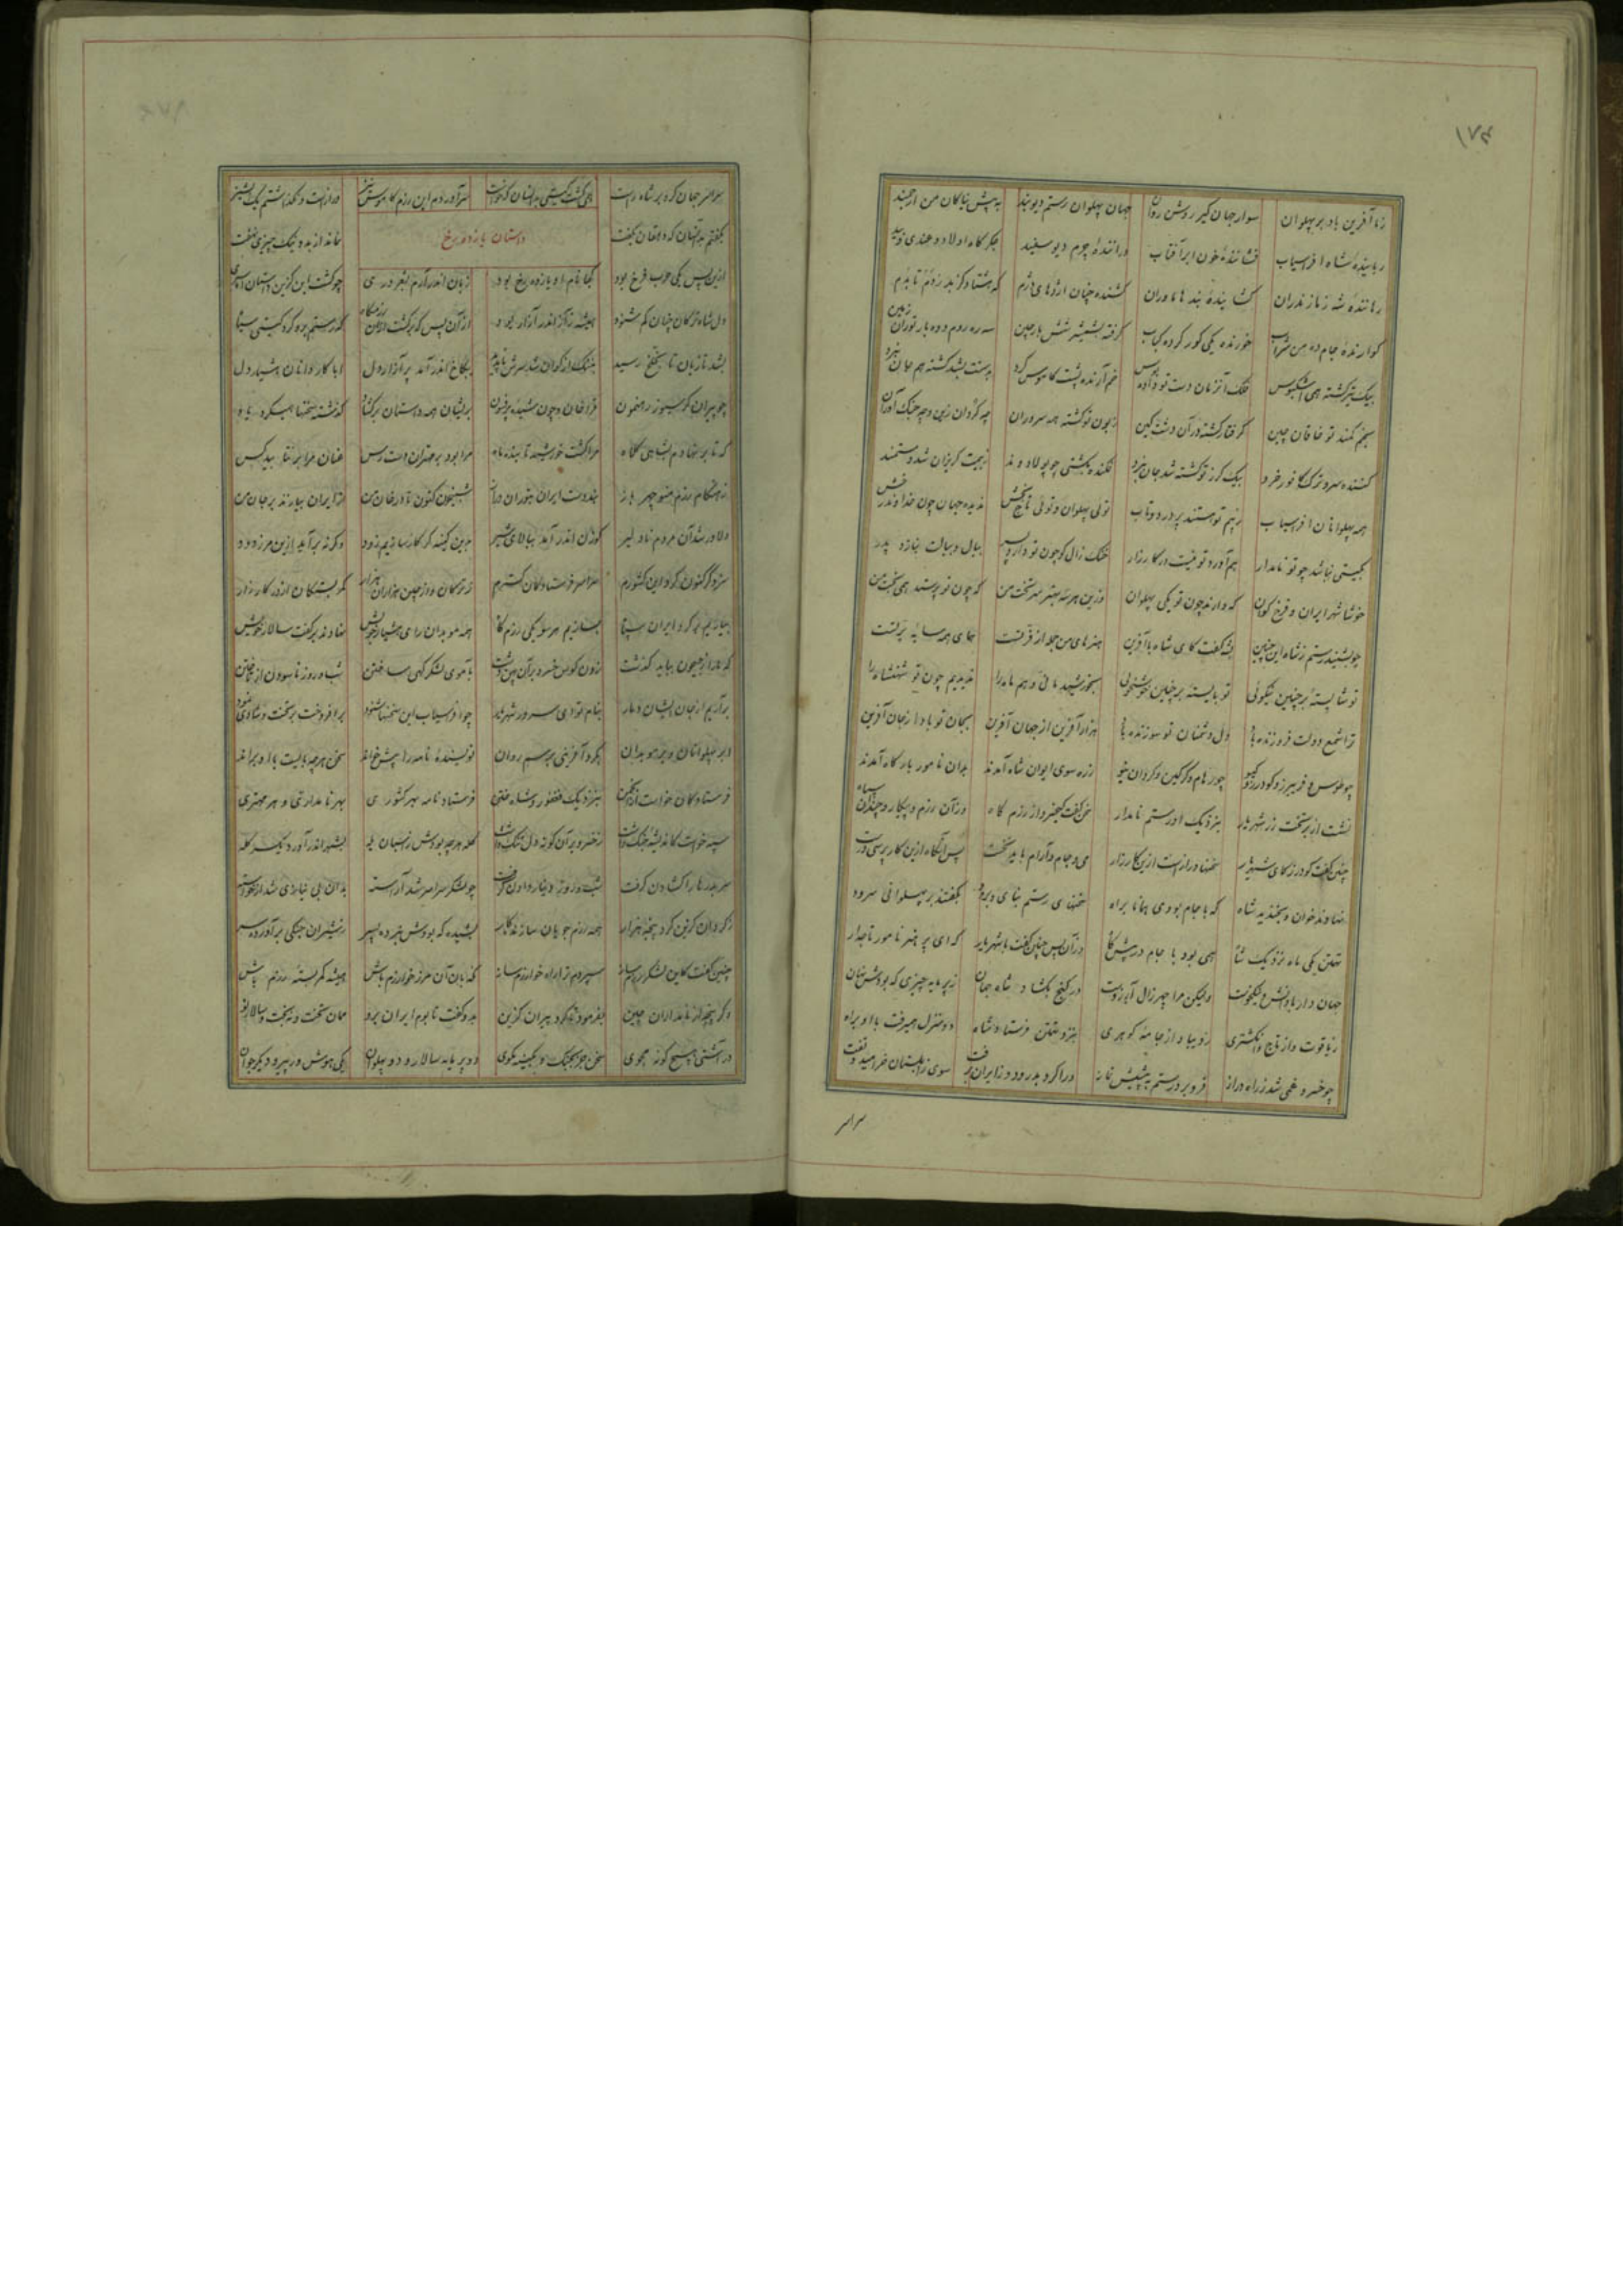 ۱۷۴
ز ما آفرین باد بر پهلوان سوار جهان گیر روشن روان جهان پهلوان رستم دیوبند به پیش نیاکان من ارجمند
رباینده شاه افراسیاب فشاننده خون ابر آفتاب دراننده چرم دیو سفید جگرگاه اولاد و غندی و بید
رهاننده شه ز مازندران گشاینده بند هاماوران کشنده چنان اژدهای دژم
گوارنده جام ده من شراب خورنده یکی گور کرده کباب گرفته بشمشیر شش بار چین سه ره روم و ده بار توران زمین
بیک تیر کشته همی اشکبوس فلک آنزمان دست تو داده بوس خم آرنده پشت کاموس گرد بدستت بشد کشته هم جان سپرد
بخم کمند تو خاقان چین گرفتار گشته در آن دشت کین زبون تو گشته همه سروران چه گردان زین و چه جنگ آوران
کشنده سر و ترک کافور خرد بیک گرز تو کشته شد جان سپرد فکنده بکشتی چو پولادوند ز بیمت گریزان شد و مستمند
همه پهلوانان افراسیاب ز بیم تو هستند پر درد و تاب توئی پهلوان و توئی تاج بخش ندیده جهان چون خداوند رخش
بگیتی نباشد چو تو نامدار هم آورد تو نیست در کارزار خنک زال کو چون تو دارد پسر ببال و ببالت بنازد پدر
خوشا شهر ایران و فرخ گوان که دارند چون تو یکی پهلوان وزین هر سه بهتر سر تخت من که چون تو پرستد همی بخت من
چو بشنید رستم ز شاه این چنین بشه گفت کای شاه با آفرین هنرهای من جمله از فر تست همای همه سایه پر تست
تو شایسته بر چنین نیکوئی تو بایسته بر چنین خوشخوئی بخورشید مانی و هم ماه را ندیدیم چون تو شهنشاه را
ترا شمع دولت فروزنده باد دل دشمنان تو سوزنده باد هزار آفرین از جهان آفرین بجان تو بادا ز جان آفرین
چو طوس و فریبرز و گودرز و گیو چو رهام و گرگین و گردان نیو ز ره سوی ایوان شاه آمدند بدان نامور بارگاه آمدند
نشست از بر تخت زر شهریار بنزدیک او رستم نامدار سخن گفت کیخسرو از رزم گاه وزان رزم و پیکار و چندان سپاه
چنین گفت گودرز کای شهریار سخنها درازست ازین کارزار می و جام و آرام باید نخست پس آنگاه ازین کار پرسی درست
نهادند خوان و بخندید شاه که با جام بودی همانا براه سخنهای رستم بنای و برود بگفتند بر پهلوانی سرود
تهمتن یکی ماه نزدیک شاه همی بود با جام در پیش گاه وزان پس چنین گفت با شهریار که ای پر هنر نامور تاجدار
جهان دار با دانش و نیکخوست ولیکن مرا چهر زال آرزوست در گنج بگشاد شاه جهان ز پر مایه چیزی که بودش نهان
ز یاقوت و از تاج و انگشتری ز دیبا و از جامه گوهری بنزد تهمتن فرستاد شاه دو منزل همیرفت با او براه
چو خسرو غمی شد ز راه دراز فرو برد رستم به پیشش نماز ورا کرد بدرود و ز ایران برفت سوی زابلستان خرامید و تفت
سراسر
سراسر جهان گرد بر شاه راست همی گشت گیتی بدانسان که خواست سر آوردم این رزم کاموس نیز دراز است و نگذاشتم یک پشیز
بگفتم بدانسان که دهقان بگفت نماند از بد و نیک چیزی نهفت
داستان یازده رخ
ازین پس یکی حرب فرخ بود کجا نام او یازده رخ بود زبان اندر آرم بشعر دری
دل شاه ترکان چنان کم شنود همیشه ز آز اندر آزار بود از آن پس که برگشت ازان رزمگاه که رستم برو کرد گیتی سیاه
بشد تازیان تا بخلخ رسید بکاخ اندر آمد پر آزار دل ابا کاردانان هشیار دل
چو پیران و گرسیوز رهنمون قراخان و چون شیده پرفسون بر ایشان همه داستان برگشاد گذشته سخنها همیکرد یاد
که تا بر نهادم بشاهی کلاه مرا گشت خورشید تابنده ماه مرا بود بر مهتران دست رس عنان مرا بر نتابید کس
ز هنگام رزم منوچهر باز نبد دست ایران بتوران دراز شبیخون کنون تا در خان من از ایران بیازند بر جان من
دلاور شد آن مردم نادلیر گوزن اندر آمد ببالای شیر برین کینه گر کار سازیم زود وگرنه برآید ازین مرز دود
سزد گر کنون گرد این کشورم سراسر فرستادگان گسترم ز ترکان و از چین هزاران هزار کمر بستگان از در کارزار
بیاریم بر گرد ایران سپاه بسازیم هر سو یکی رزم گاه همه موبدان رای هشیار خویش نهادند بر گفت سالار خویش
که ما را ز جیحون بباید گذشت زدن کوس خسرو بر آن پهن دشت بآموی لشکر گهی ساختن شب و روز ناسودن از تاختن
برآریم از جان ایشان دمار بنام تو ای سرور شهریار چو افراسیاب این سخنها شنود برافروخت بر تخت و شادی نمود
ابر پهلوانان و بر موبدان بکرد آفرینی برسم ردان نویسنده نامه را پیش خواند سخن هر چه بایست با او براند
فرستادگان خواست از انجمن بنزدیک فغفور و شاه ختن فرستاد نامه بهر کشوری بهر نامداری و هر مهتری
سپه خواست کاندیشه جنگ داشت ز خسرو بر آن گونه دل تنگ داشت گله هر چه بودش ز اسبان یله بشهر اندر آورد یکسر گله
سر بدرها را گشادن گرفت شب و روز دینار دادن گرفت چو لشکر سراسر شد آراسته بدان بی نیازی شد از خواسته
ز گردان گزین کرد پنجه هزار همه رزم جویان سازنده کار بشیده که بودش نبرده پسر ز شیران جنگی برآورده سر
چنین گفت کاین لشکر رزمساز سپردم ترا راه خوارزم ساز نگهبان آن مرز خوارزم باش همیشه کمر بسته رزم باش
دگر پنجه از نامداران چین بفرمود تا کرد پیران گزین بدو گفت تا بوم ایران برو ممان تخت و نه بخت و سالار نو
در آشتی هیچ گونه مجوی سخن جز بجنگ و بکینه مگوی دو پر مایه سالار و دو پهلوان یکی هوش ور پیر و دیگر جوان